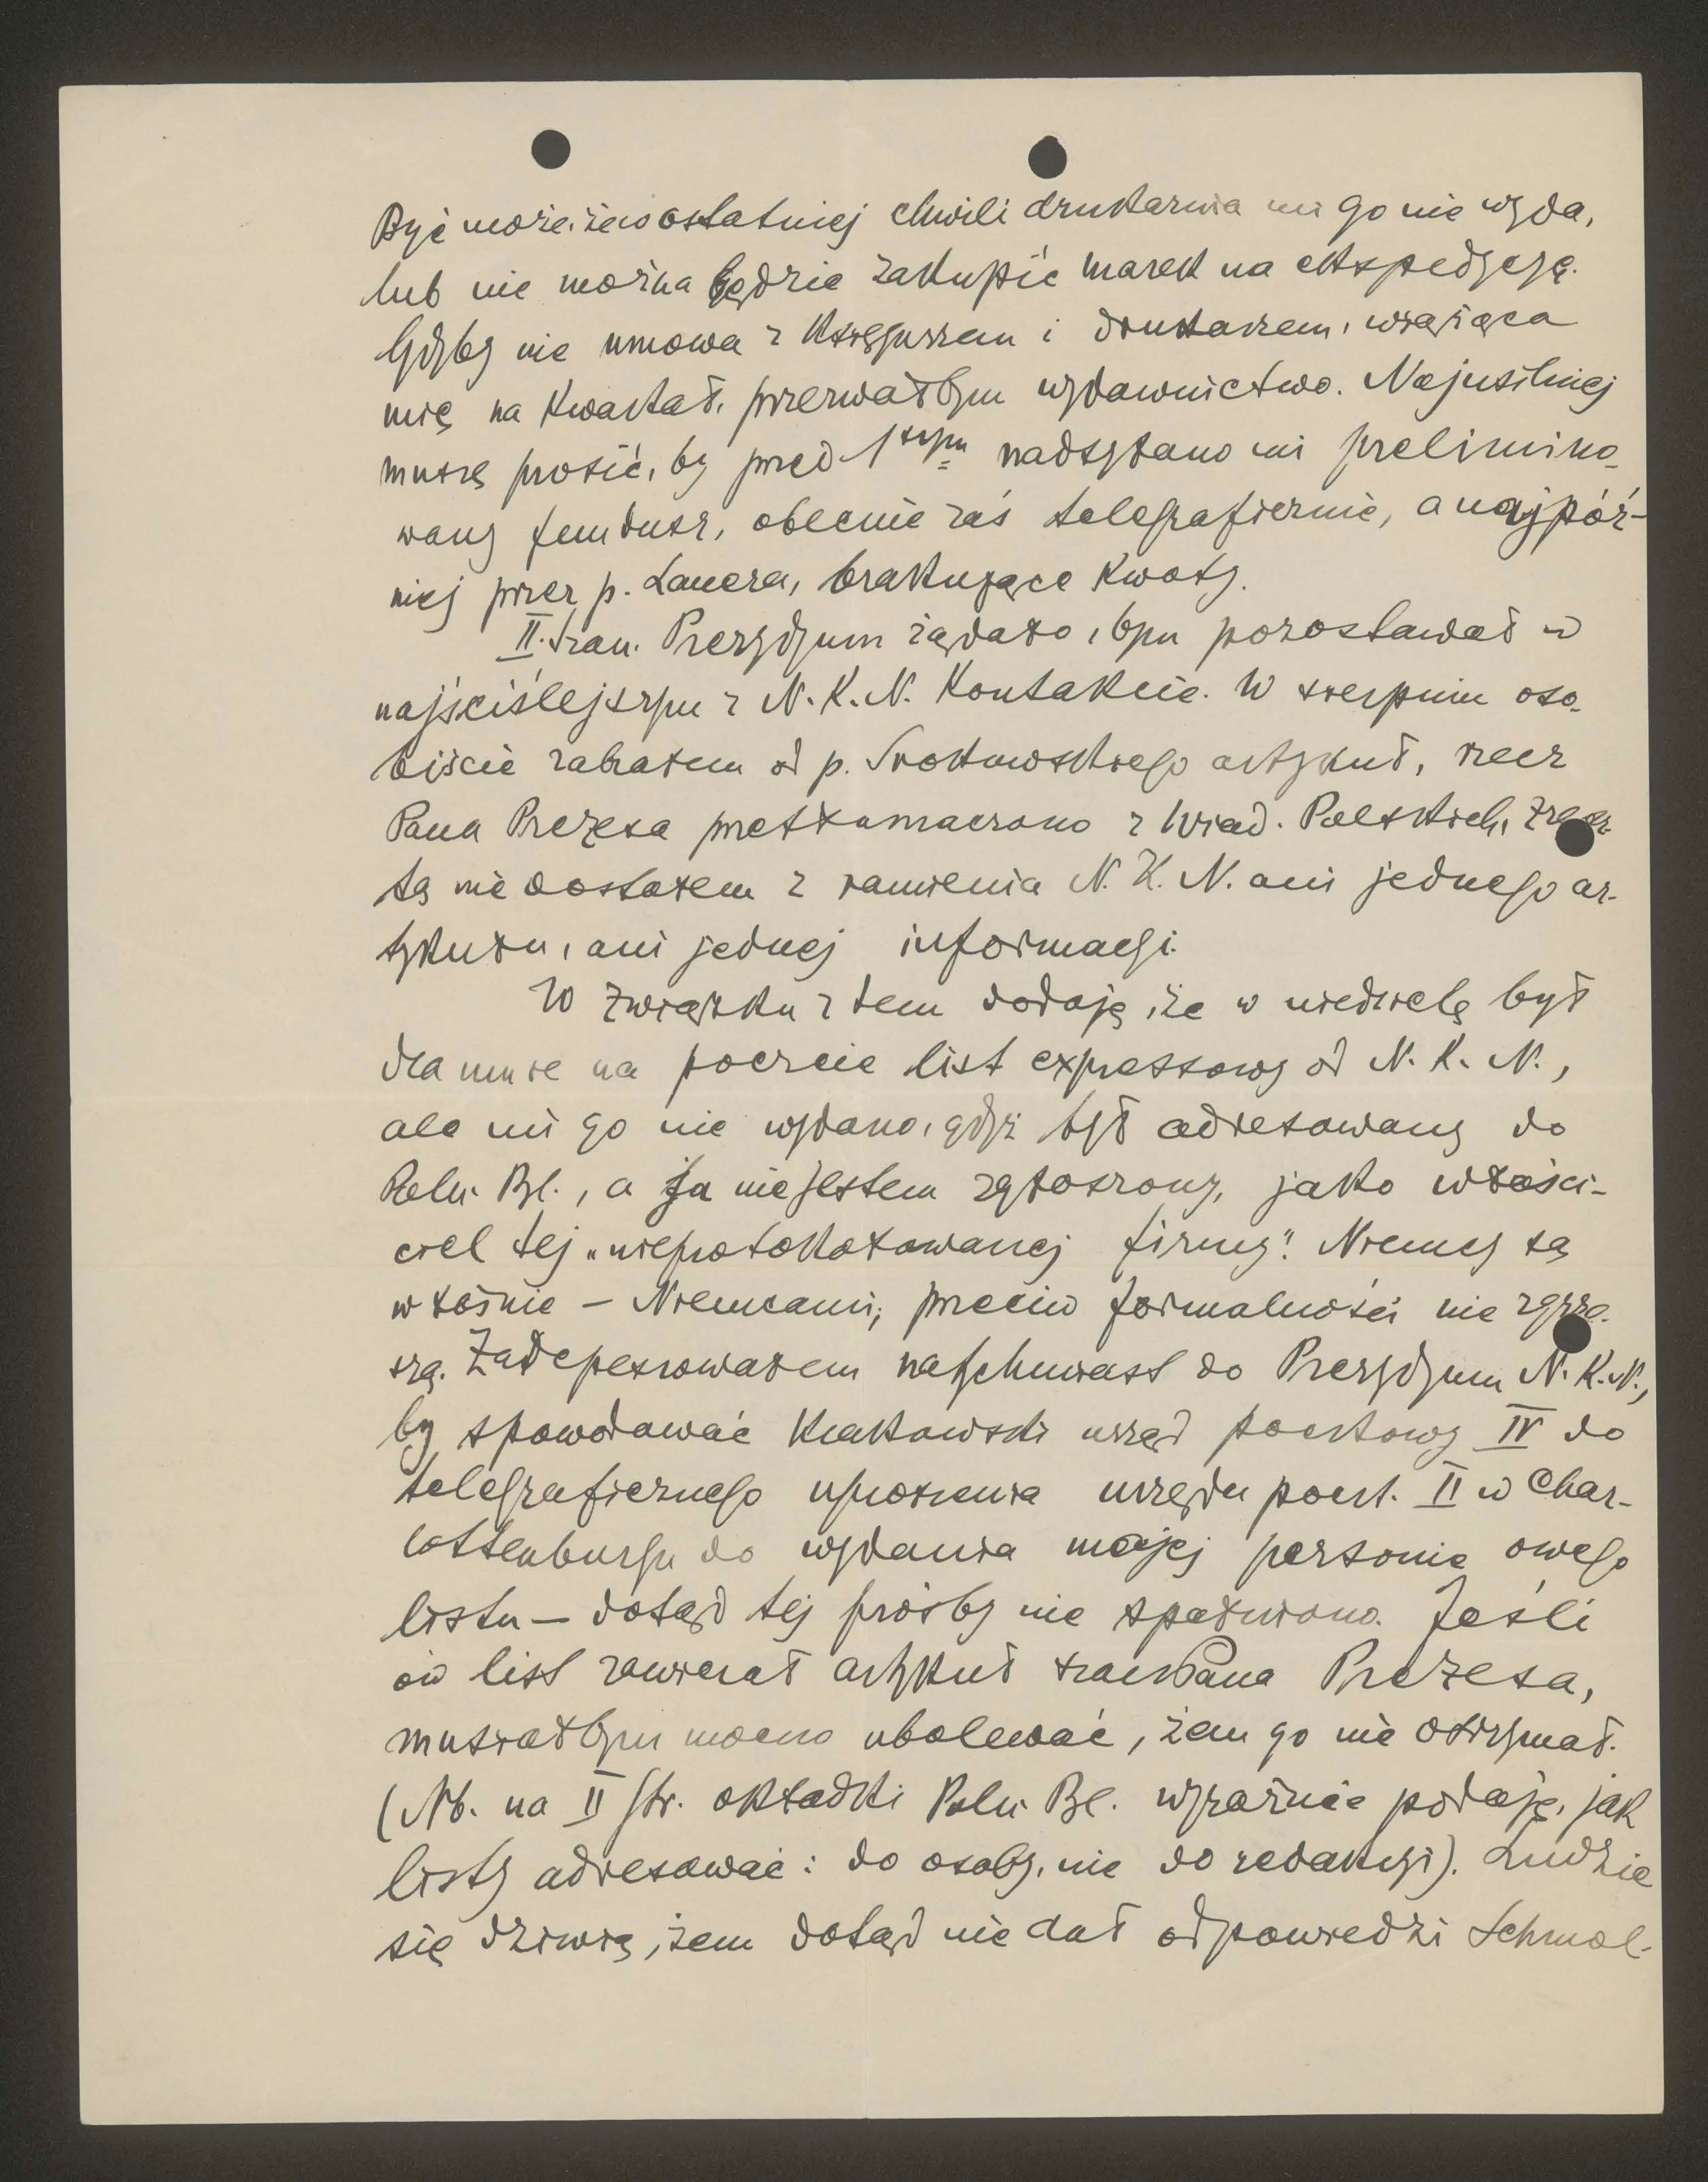 Być może, że w ostatniej chwili drukarnia mi go nie wyda,
lub nie można będzie zakupić marek na ekspedycyę.
Gdyby nie umowa z księgarzem i drukarzem, wiążąca
mię na kwartał, przerwałbym wydawnictwo. Najusilniej
muszę prosić, by przed 1szym nadsyłano mi prelimino-
wany fundusz, obecnie zaś telegraficznie, a najpóź-
niej przez p. Lauera, brakujące kwoty.
II. Szan. Prezydyum żądało, bym pozostawał w
najściślejszym z N. K. N. kontakcie. W sierpniu oso-
biście zabrałem od p. Srokowskiego artykuł, rzecz
Pana Prezesa przetłumaczono z Wiad. Polskich, zresz-
tą nie dostałem z ramienia N. K. N. ani jednego ar-
tykułu, ani jednej informacyi.
W związku z tem dodaję, że w niedzielę był
dla mnie na poczcie list expressowy od N. K. N.,
ale mi go nie wydano, gdyż był adresowany do
Poln. Bl., a ja nie jestem zgłoszony, jako właści-
ciel tej „nieprotokołowanej firmy". Niemcy są
właśnie – Niemcami; przeciw formalności nie zgrze-
szą. Zadepeszowałem natychmiast do Prezydyum N. K. N.,
by spowodować krakowski urząd pocztowy IV do
telegraficznego uproszenia urzędu poczt. II w Char-
lottenburgu do wydania mojej personie owego
listu – dotąd tej prośby nie spełniono. Jeśli
ów list zawierał artykuł szan. Pana Prezesa,
musiałbym mocno ubolewać, żem go nie otrzymał.
(Nb. na II str. okładki Poln. Bl. wyraźnie podaję, jak
listy adresować: do osoby, nie do redakcyi). Ludzie
się dziwią, żem dotąd nie dał odpowiedzi Schmol-